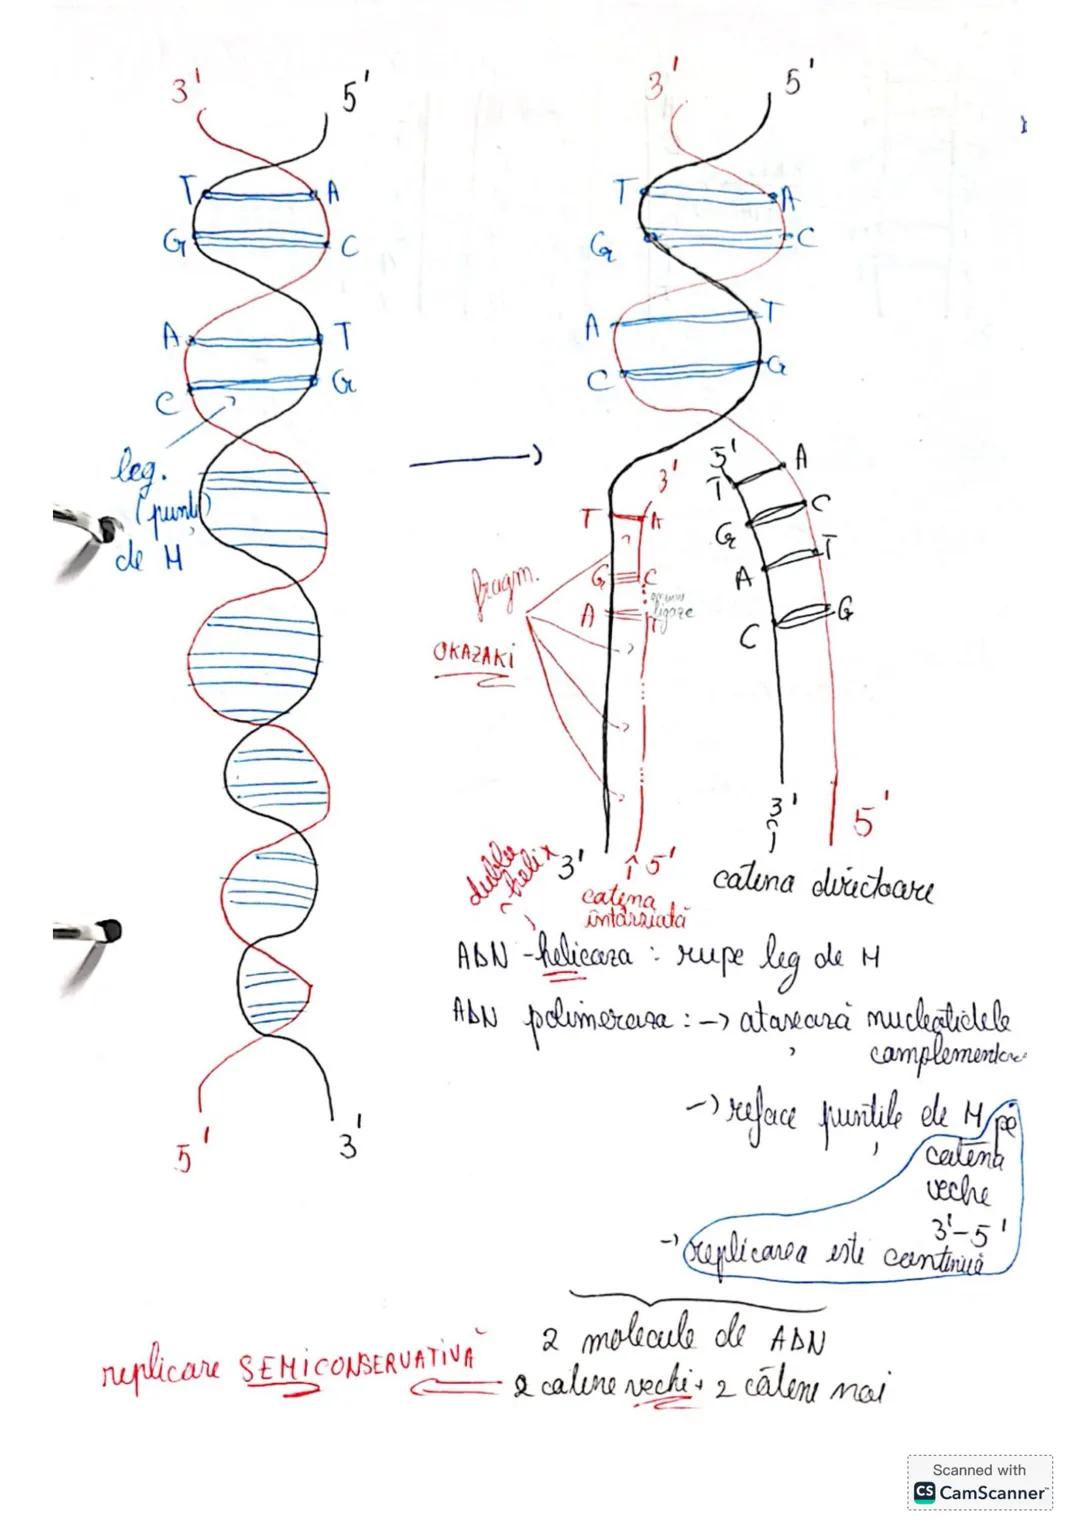 3' 5'
T A
G C
A T
C G
leg.
(punți)
de H
5' 3'
3' 5'
T A
G C
A T
C G
3'
T A
G C
A T
ligaze
fragm.
OKAZAKI
5'
T A
G C
A T
C G
3' 5'
3' 5'
dublu
helix
catena
întârziată
catena directoare
ADN - helicaza : rupe leg de H
ADN polimeraza : -> atașează nucleotidele
complementare
-> reface punțile de H pe
catena
veche
3'-5'
-> replicarea este continuă
2 molecule de ADN
2 catene vechi + 2 catene noi
replicare SEMICONSERVATIVĂ
Scanned with
CS CamScanner